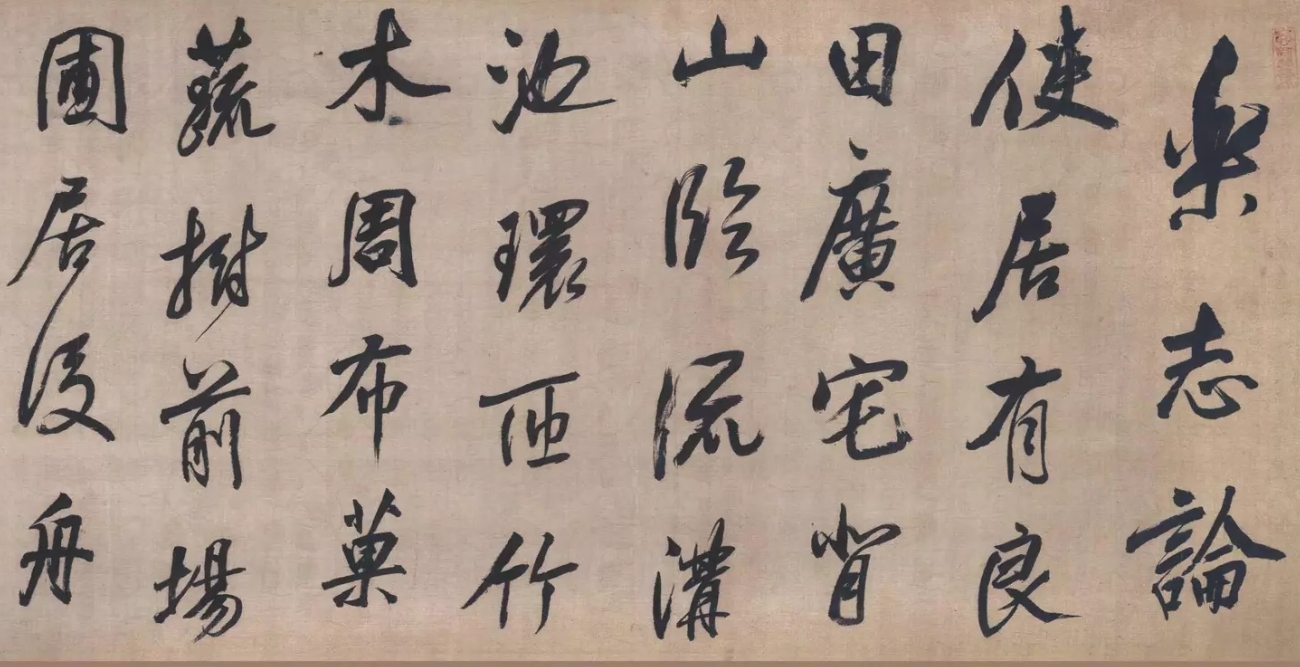 樂志論
使居有良
田廣宅背
山臨流溝
池環匝竹
木周布菓
蔬樹前場
圃居後舟